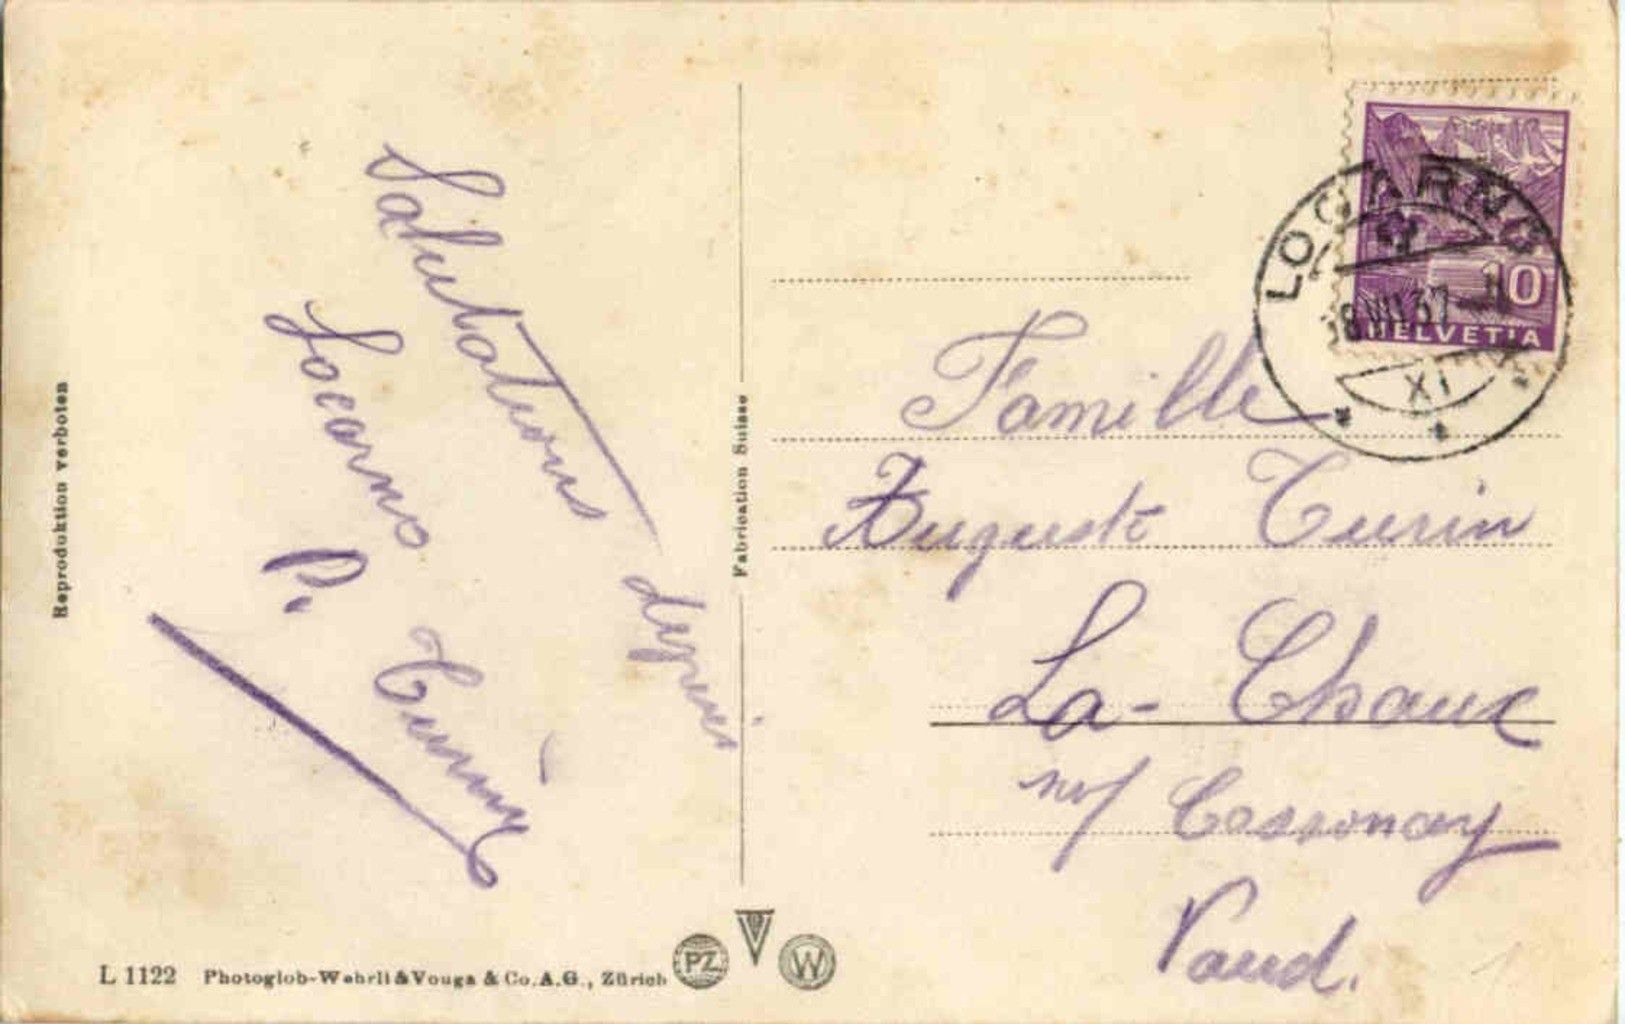 Reproduktion verboten
Salutations depuis
Locarno
P. Turin
L 1122 Photoglob-Wehrli & Vouga & Co. A.G., Zürich
PZ
V
W
Fabrication Suisse
LOCARNO
VIII 37
XI
10
HELVETIA
Famille
Auguste Turin
La-Chaux
Cossonay
Vaud.